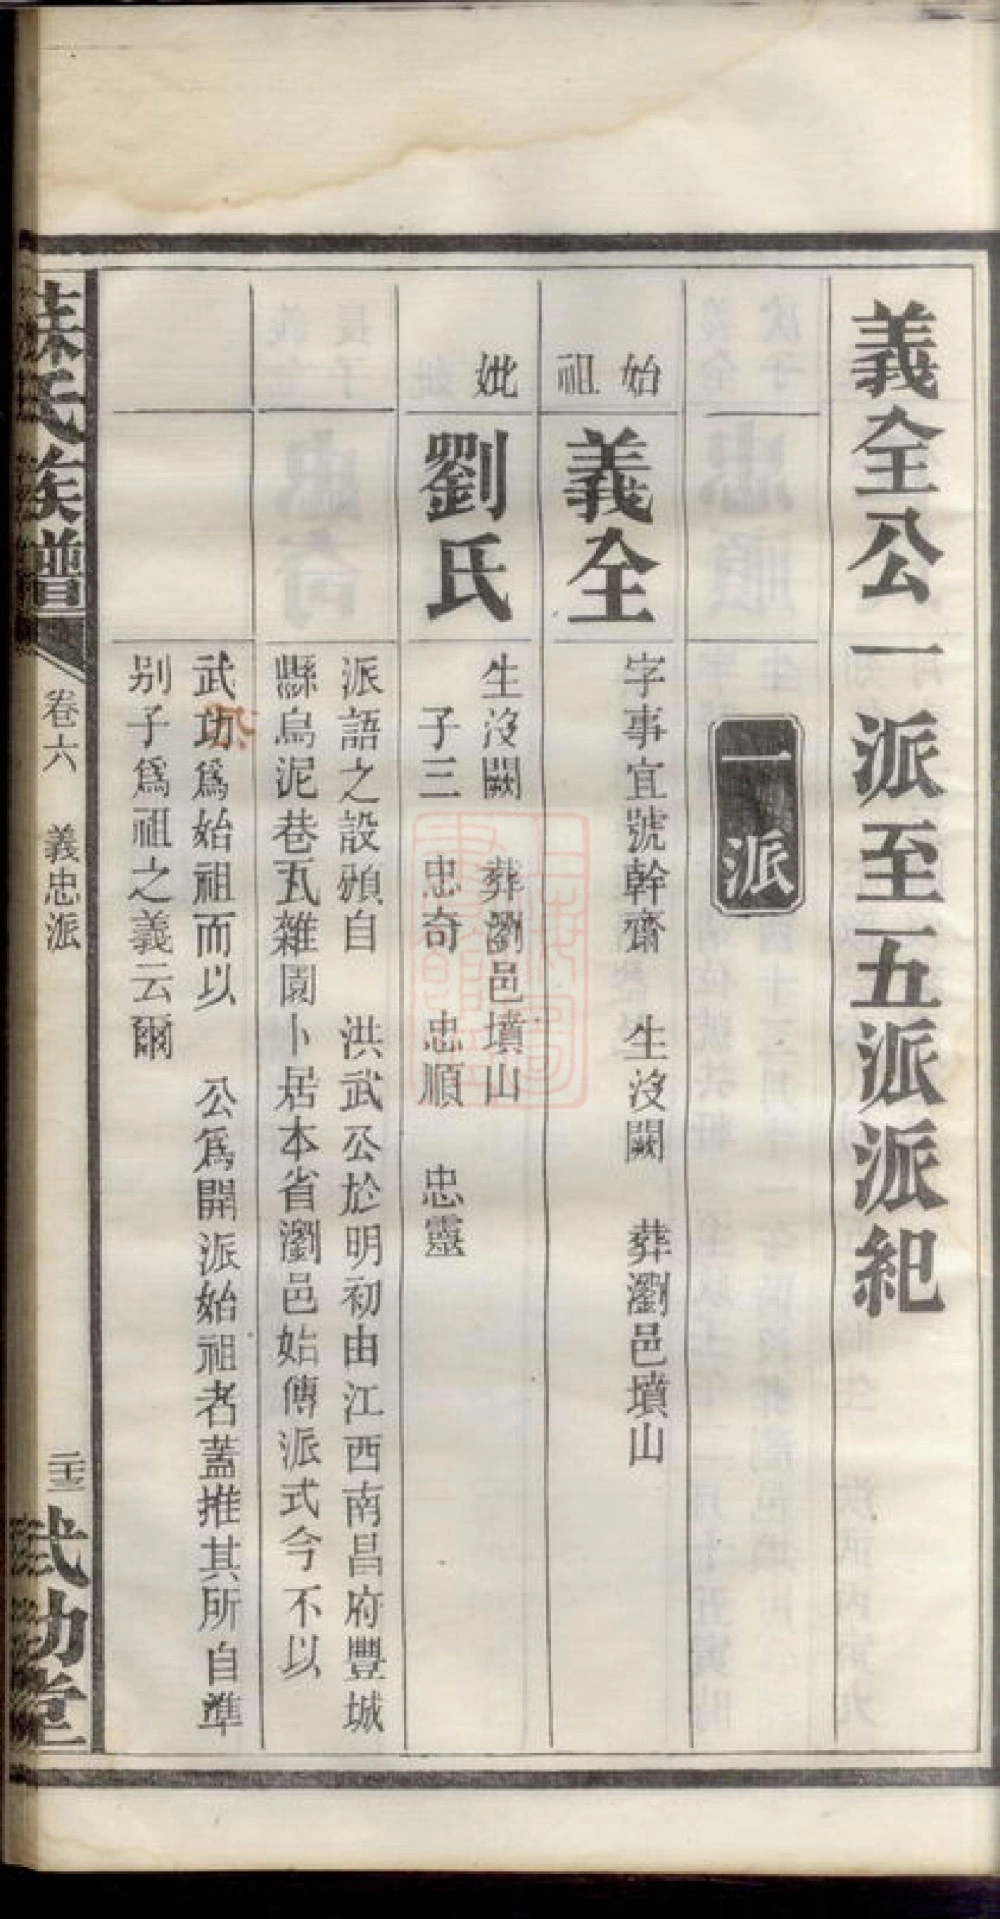 義全公一派至五派派紀
一派
始祖
義全
字事宜號幹齋 生沒闕 葬瀏邑墳山
妣
劉氏
生沒闕 葬瀏邑墳山
子三 忠奇 忠順 忠靈
派語之設雖自 洪武公於明初由江西南昌府豐城
縣烏泥巷瓦雜園卜居本省瀏邑始傳派式今不以
武功爲始祖而以 公爲開派始祖者蓋推其所自準
别子爲祖之義云爾
蘇氏族譜
卷六 義忠派
二十三
武功堂